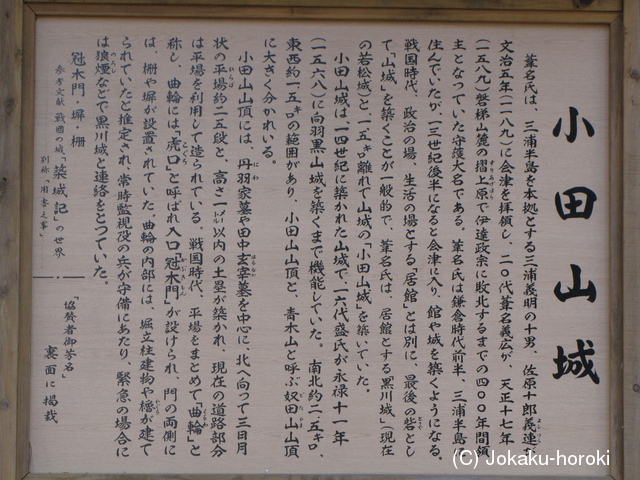 小田山城
葦名氏は、三浦半島を本拠とする三浦義明の十男、佐原十郎義連が
文治五年(一一八九)に会津を拝領し、二〇代葦名義広が、天正十七年
(一五八九)磐梯山麓の摺上原で伊達政宗に敗北するまでの四〇〇年間領
主となっていた守護大名である。葦名氏は鎌倉時代前半、三浦半島に
住んでいたが、一三世紀後半になると会津に入り、館や城を築くようになる。
戦国時代、政治の場、生活の場とする「居館」とは別に、最後の砦とし
て「山城」を築くことが一般的で、葦名氏は、居館とする黒川城(現在
の若松城)と、一・五㌔離れて山城の「小田山城」を築いていた。
小田山城は、一四世紀に築かれた山城で、一六代盛氏が永禄十一年
(一五六八)に向羽黒山城を築くまで機能していた。南北約二・五㌔、
東西約一・五㌔の範囲があり、小田山山頂と、青木山と呼ぶ奴田山山頂
に大きく分かれいる。
小田山山頂には、丹羽家墓や田中玄宰墓を中心に、北へ向って三日月
状の平場約二五段と、高さ一㍍以内の土塁が築かれ、現在の道路部分
は平場を利用して造られている。戦国時代、平場をまとめて「曲輪」と
称し、曲輪には「虎口」と呼ばれ入口「冠木門」が設けられ、門の両側に
は、柵や塀が設置されていた。曲輪の内部には、堀立柱建物や櫓が建て
られていたと推定され、常時監視役の兵が守備にあたり、緊急の場合に
は狼煙などで黒川城と連絡をとっていた。
冠木門・塀・柵
参考文献 戦国の城「築城記」の世界
別称「用害之事」
「協賛者御芳名」
裏面に掲載
(C) Jokaku-horoki